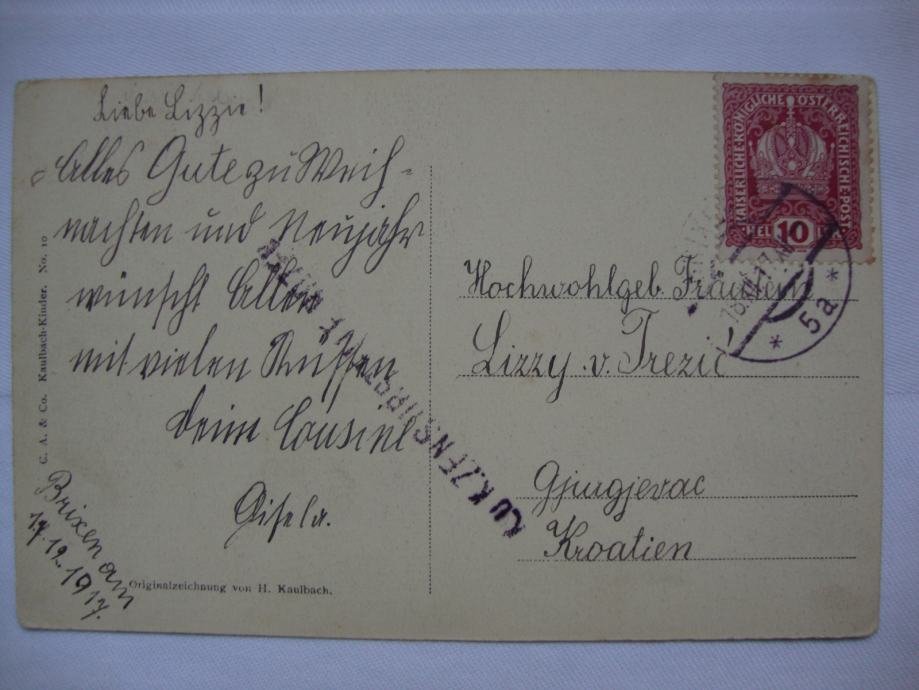 Liebe Lizzie!
Alles Gute zu Weih-
nachten und Neujahr
wünscht Allen
mit vielen Küssen
Deine Cousine
Gisela.
Brixen am
17.12.1917.
C. A. & Co. Kaulbach-Kinder. No. 10
Originalzeichnung von H. Kaulbach.
KAISERLICHE KÖNIGLICHE ÖSTERREICHISCHE POST
HELLER
10
* 5a *
Hochwohlgeb. Fräulein
Lizzy v. Trezić
Gjurgjevac
Kroatien
K.u.K. ZENSUR